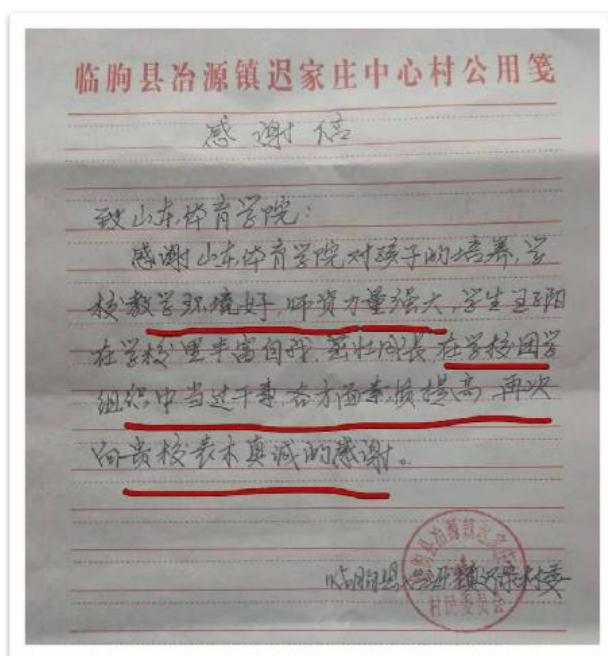 临朐县冶源镇迟家庄中心村公用笺
感谢信
致山东体育学院:
感谢山东体育学院对孩子的培养,学
校教学环境好,师资力量强大,学生王阳
在学校里丰富自我,茁壮成长,在学校团学
组织中当过干事,各方面素质提高,再次
向贵校表木真诚的感谢。
临朐县冶源镇迟家村委
临朐县冶源镇迟家庄
村民委员会